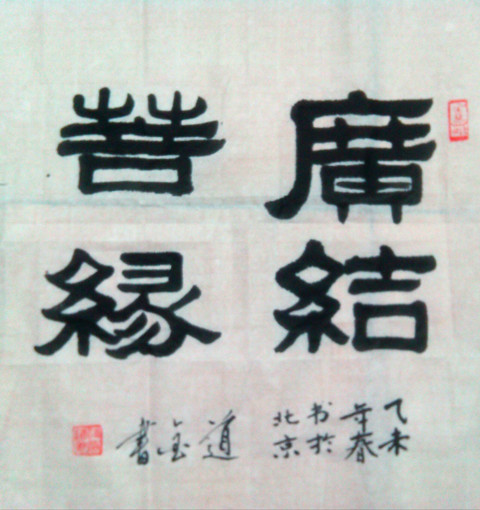 廣結
善緣
乙未
年春
书於
北京
道金書